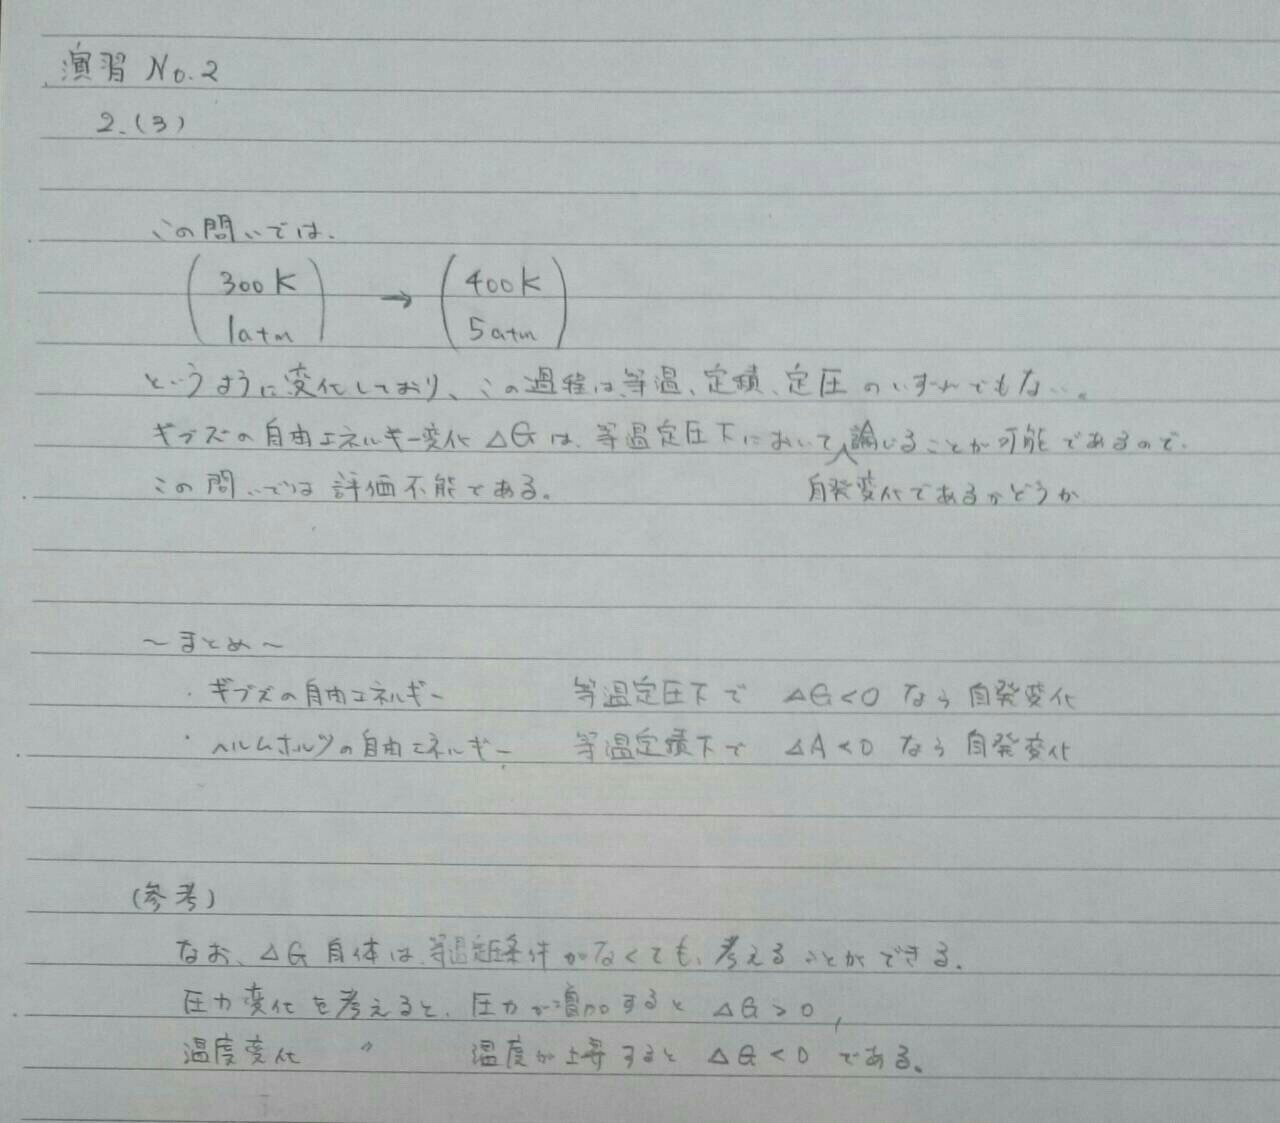 演習 No.2
2.(3)
この問いでは、
(300K 1atm) → (400K 5atm)
というように変化しており、この過程は等温、定積、定圧のいずれでもない。
ギブズの自由エネルギー変化 ΔGは、等温定圧下において論じることが可能であるので、
この問いでは評価不能である。 自発変化であるかどうか
～まとめ～
・ギブズの自由エネルギー 等温定圧下で ΔG<0 なら 自発変化
・ヘルムホルツの自由エネルギー 等温定積下で ΔA<0 なら 自発変化
(参考)
なお、ΔG 自体は、等温定圧条件がなくても、考えることができる。
圧力変化を考えると、圧力が増加すると ΔG>0,
温度変化 〃 温度が上昇すると ΔG<0 である。